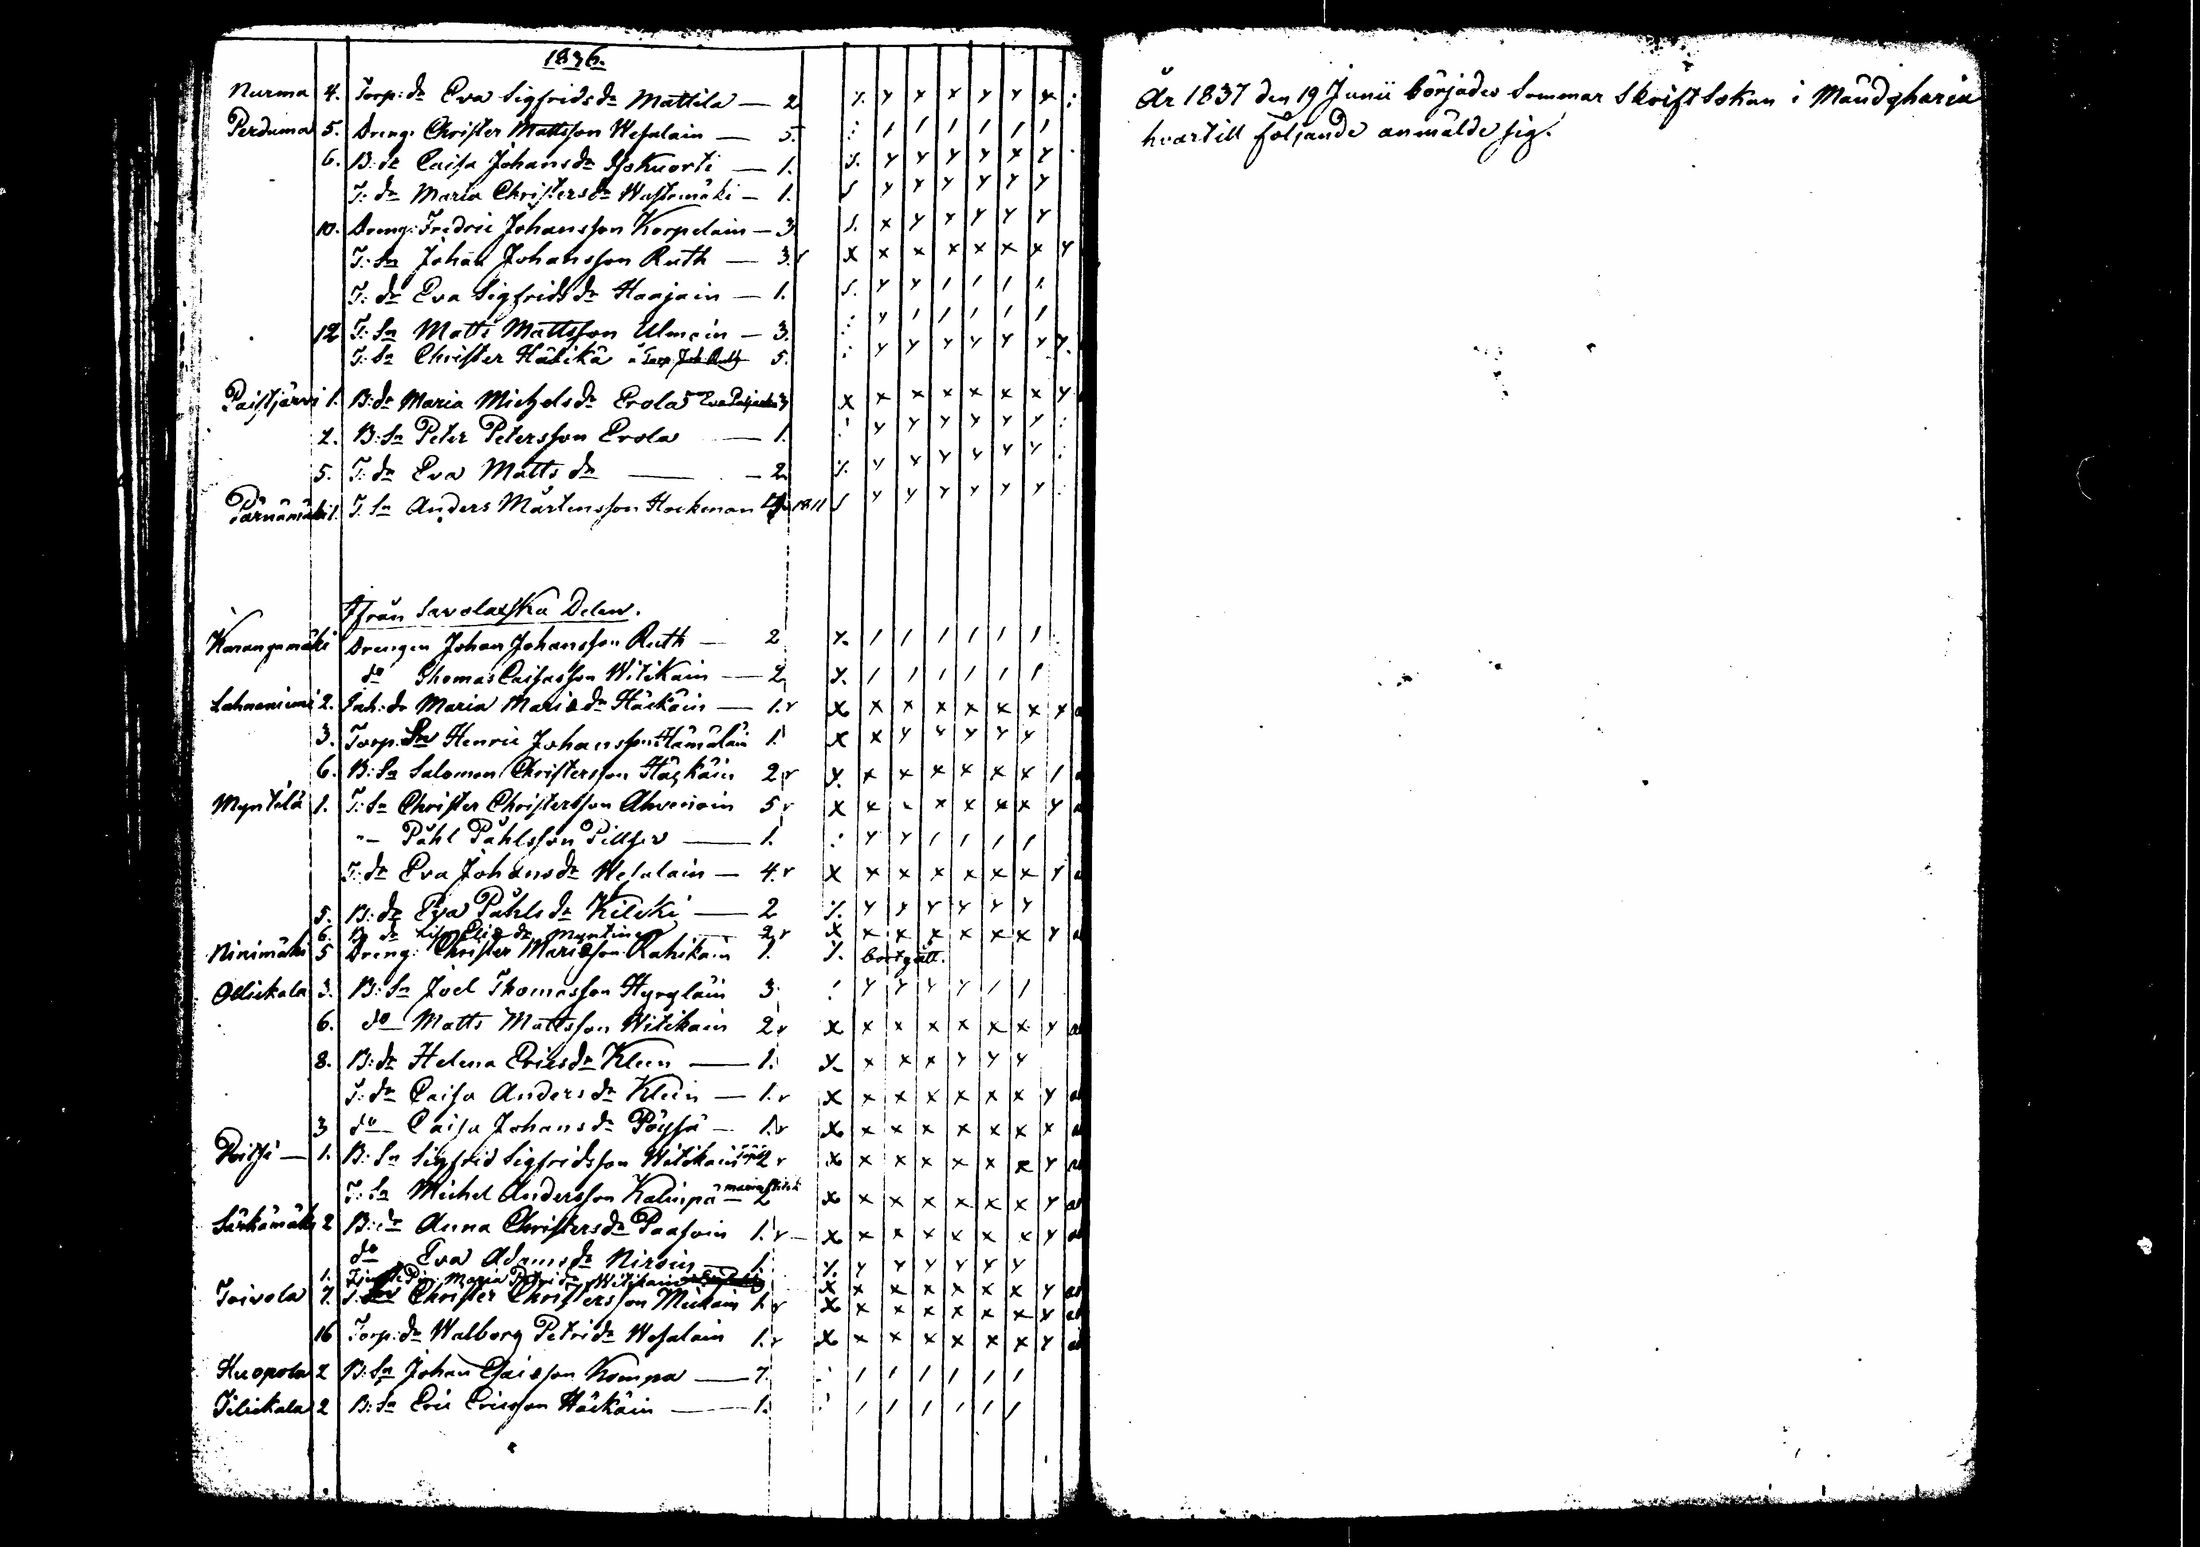 1836.
Nurma 4. Torp: dr Eva Sigfrids dr Mattila — 2
Perduma 5. Dreng: Christer Mattsson Wesalain — 5.
6. B: dr Caisa Johans dr Iskuorti — 1.
T: dr Maria Christers dr Wustomäki — 1.
10. Dreng: Fredric Johansson Korpelain — 3
T: Sn Johan Johansson Ruth — 3. r
T: dr Eva Sigfrids dr Haajain — 1.
12 T: Sn Matts Mattsson Ulmain — 3.
T: Sn Christer Häkikä 5.
Paistjärvi 1. B: dr Maria Michels dr Erola 3
2. B: Sn Peter Petersson Erola — 1.
5. T: dr Eva Matts dr — 2
Pärnämäki 1. T. Sn Anders Mårtensson Hockman 1811
Ifrån Savolaxska Delen.
Karangamäki Drengen Johan Johansson Ruth — 2
do Thomas Caisasson Witikain — 2
Lahnaniemi 2. Inh: dr Maria Mariæ dr Häckäin — 1. r
3. Torp. Sn Henric Johansson Hämäläin 1.
6. B: Sn Salomon Christersson Häckäin 2 r
Myntilä 1. T: Sn Christer Christersson Ahvenain 5 r
"— Påhl Påhlsson Pillger — 1.
T: dr Eva Johans dr Wesalain — 4. r
5. B: dr Eva Påhls dr Kilcki — 2
6. B dr Lisa dr Myntinen 2 r
Ninimäki 5 Dreng: Christer Mariæson Rahikain 1. bortgått.
Ollickala 3. B: Sn Joel Thomasson Hyryläin 3
6. do Matts Mattsson Witikain 2 r
8. B: dr Helena Erics dr Kleen — 1.
T: dr Caisa Anders dr Klein — 1. r
3 do Caisa Johans dr Pöyssä — 1. r
1. B: Sn Sigfrid Sigfridsson Witikain 2 r
T: Sn Michel Andersson Kalinpä — 2
Särkämäki 2 B: dr Anna Christers dr Paasoin 1. r
do Eva Adams dr Niroin 1.
1. Maria Petri dr Witikain
Toivola 7. T: Sn Christer Christersson Mickain 1. r
16 Torp: dr Walborg Petri dr Wesalain 1. r
Huopola 2 B: Sn Johan Kompa — 7.
Tilickala 2 B: Sn Eric Ericsson Häckäin — 1.
År 1837 den 19 Junii börjades Sommar Skriftskolan i Mäntyharju
hvartill följande anmälde sig.